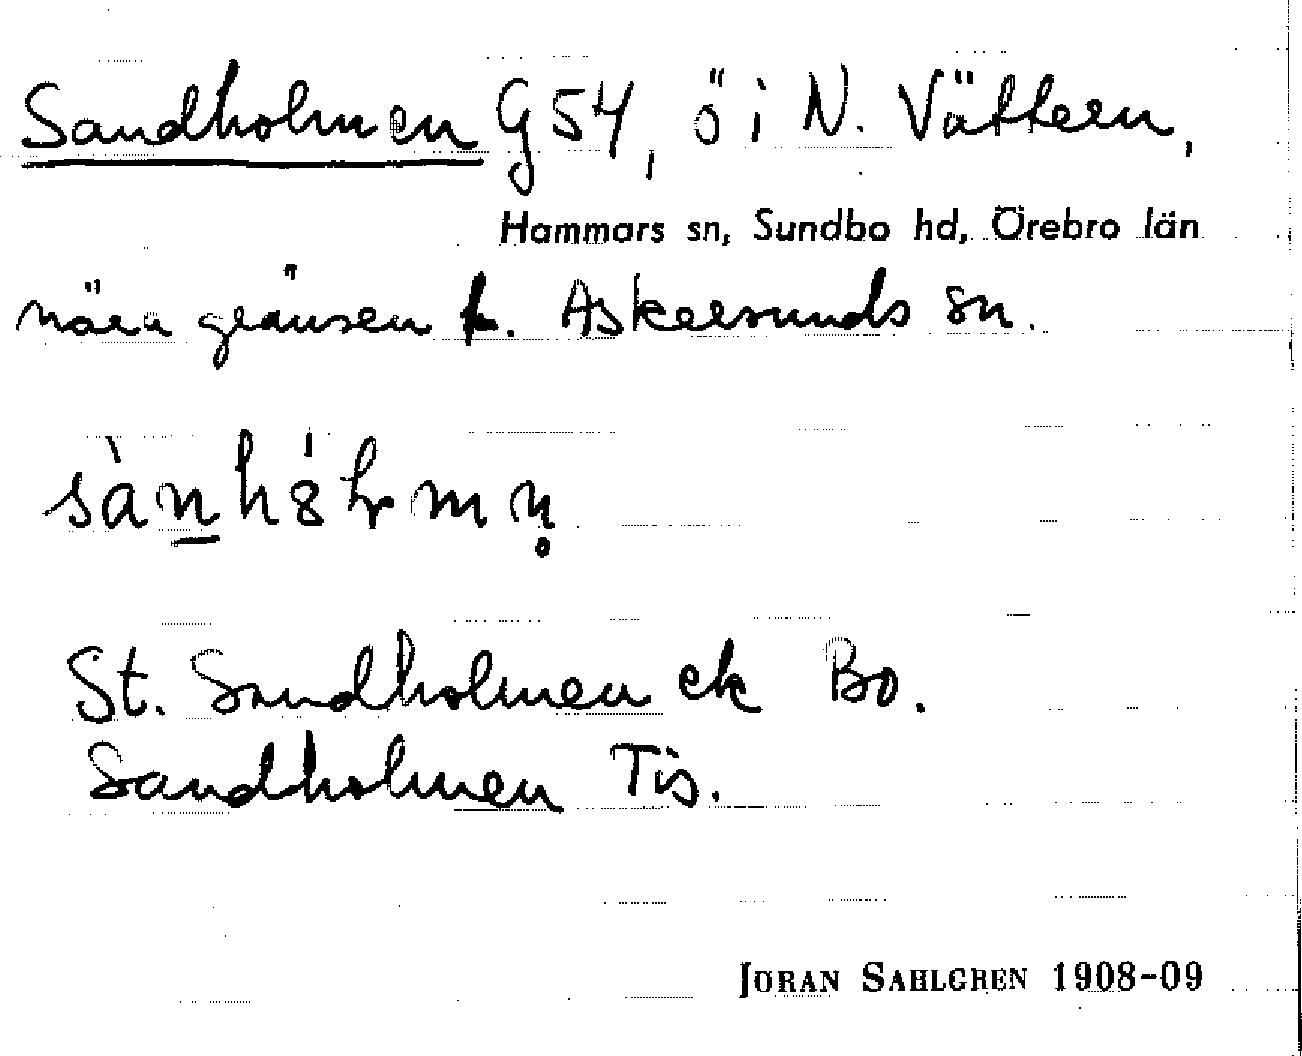 Sandholmen G54, ö i N. Vättern,
Hammars sn, Sundbo hd, Örebro län
nära gränsen t. Askersunds sn.
St. Sandholmen ek Bo.
Sandholmen Tis.
JÖRAN SAHLGREN 1908-09